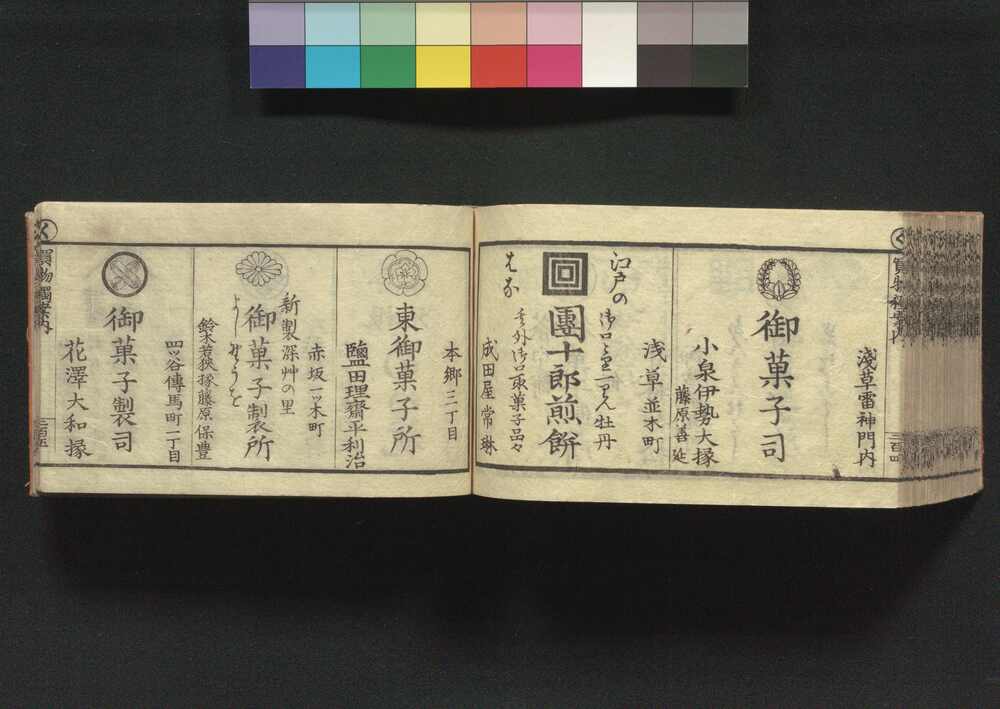 く
買物獨案内
二百四
淺草雷神門内
御菓子司
小泉伊勢大掾
藤原善延
浅草並木町
江戸の
はな
團十郎煎餅
牡丹
御口取菓子品々
成田屋常琳
本郷三丁目
東御菓子所
鹽田理齋平利治
赤坂一ッ木町
新製深艸の里
御菓子製所
鈴木若狹掾藤原保豊
四ッ谷傳馬町一丁目
御菓子製司
花澤大和掾
く
買物獨案内
二百五